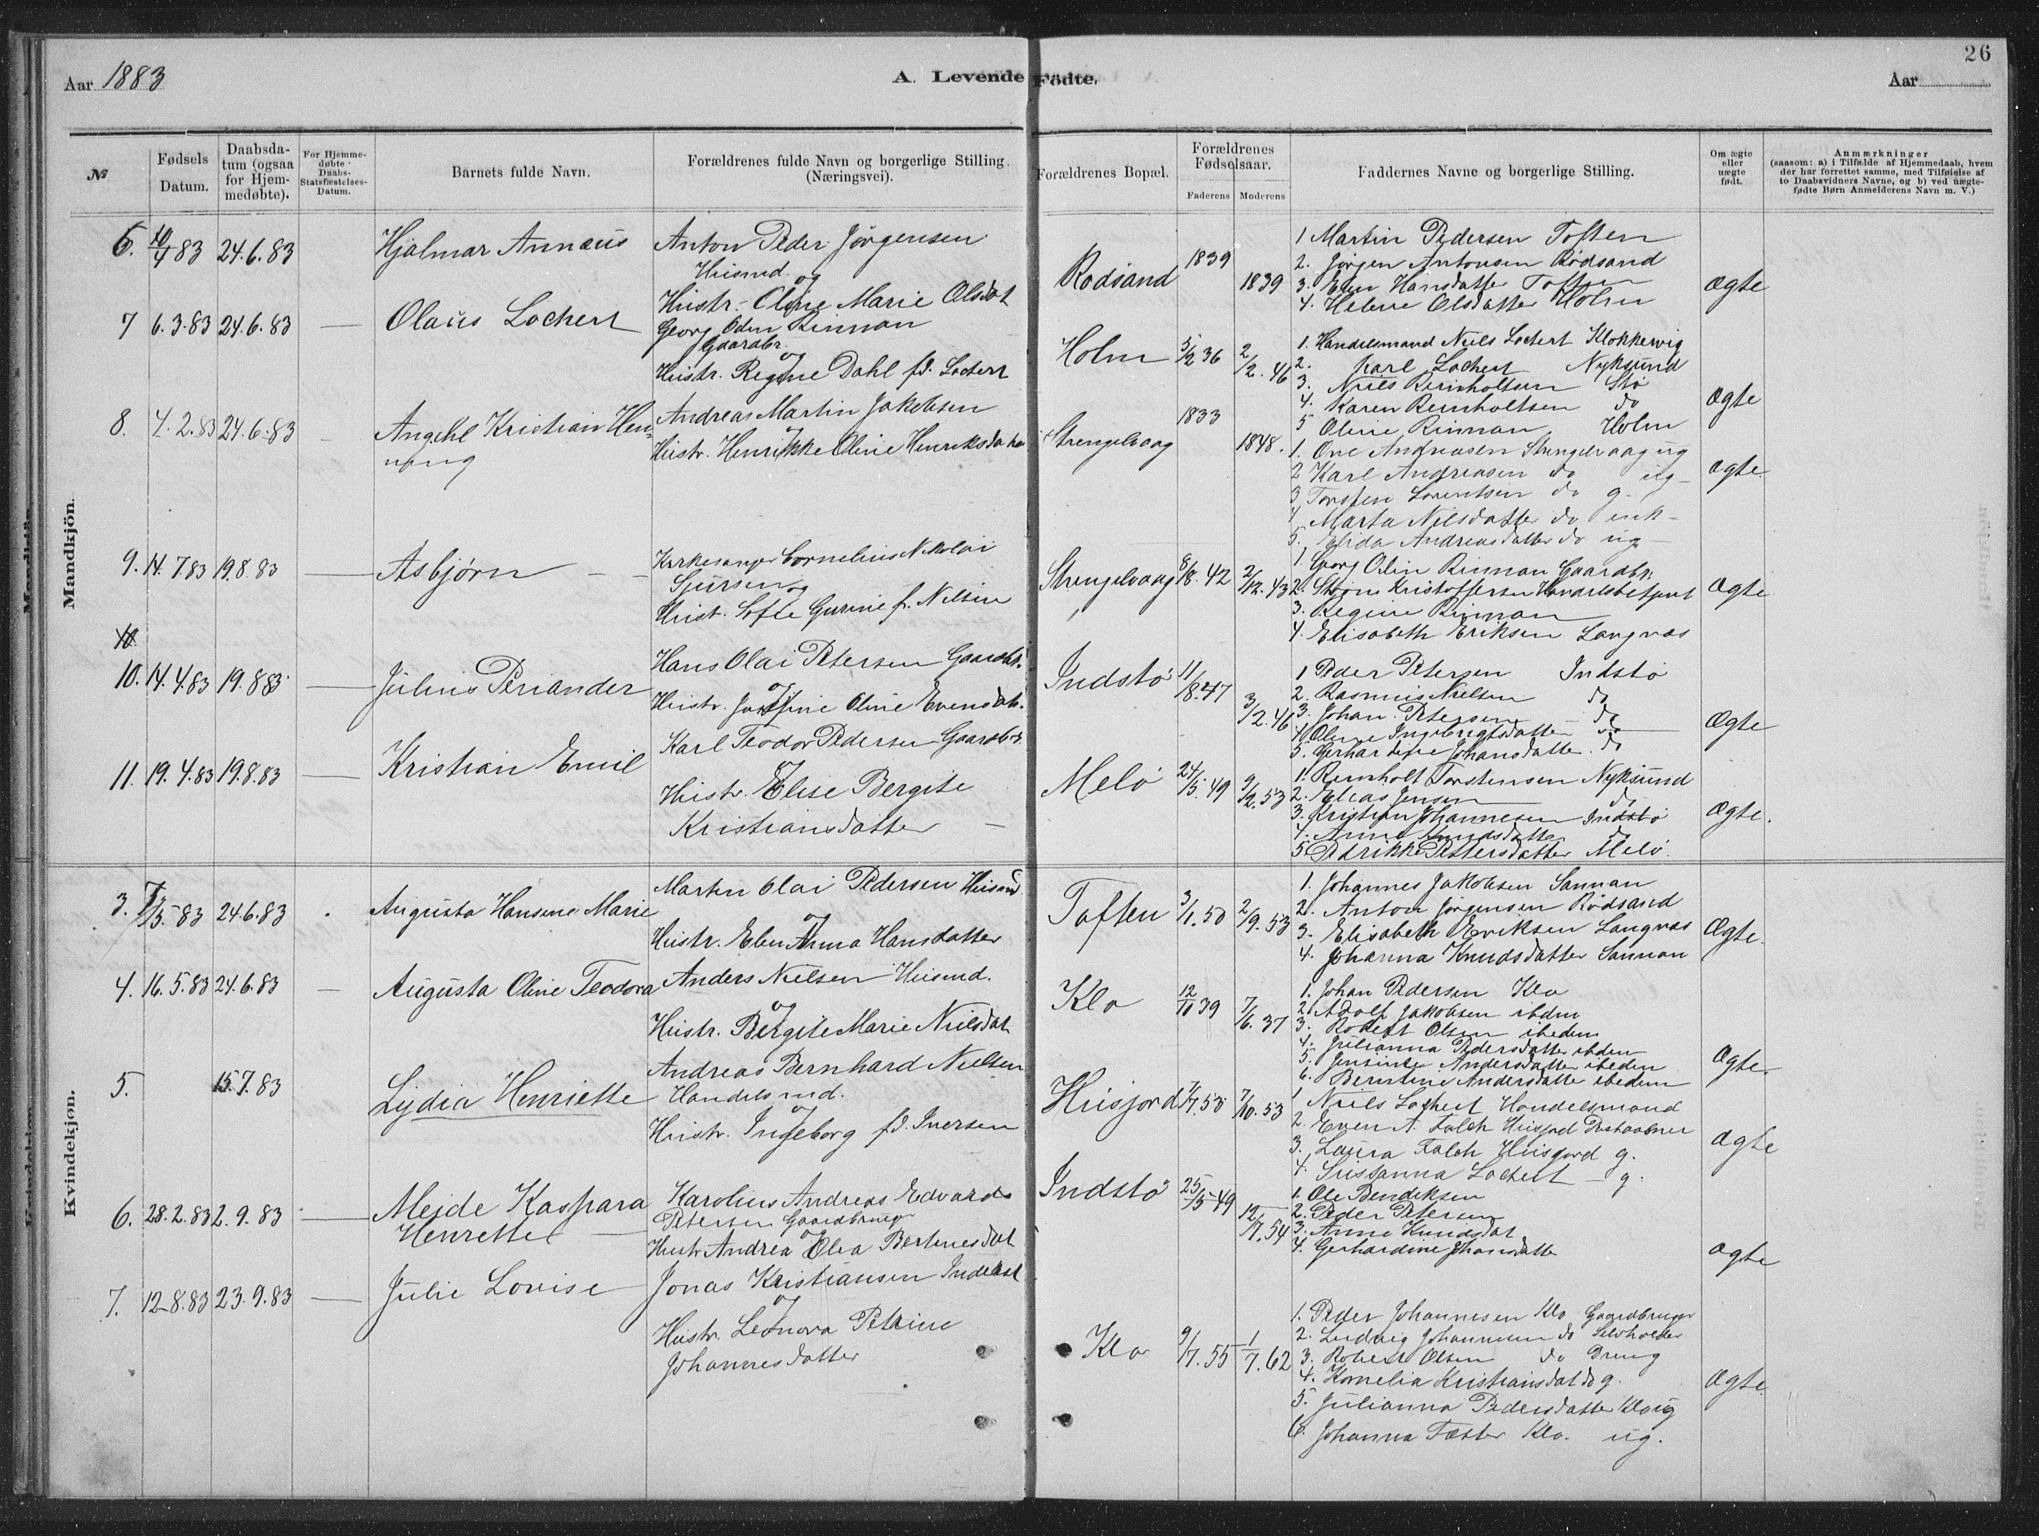 Aar 1883
A. Levende Födte.
26
Aar
№
Fødsels Datum.
Daabsdatum (ogsaa for Hjemmedøbte).
For Hjemmedøbte Daabs-Statsfæstelses-Datum.
Barnets fulde Navn.
Forældrenes fulde Navn og borgerlige Stilling. (Næringsvei).
Forældrenes Bopæl.
Forældrenes Fødselsaar.
Faderens
Moderens
Faddernes Navne og borgerlige Stilling.
Om ægte eller uægte født.
Anmærkninger
(saasom: a) i Tilfælde af Hjemmedaab, hvem der har forrettet samme, med Tilføielse af to Daabsvidners Navne, og b) ved uægtefødte Børn Anmelderens Navn m. V.)
Mandkjön.
6. 10/4 83 24.6.83 Hjalmar Annæus
Anton Peder Jørgensen
Husmd. og
Hustr. Oline Marie Olsdat
Rodsand 1839 1839
1 Martin Pedersen Toften
2. Jørgen Antonsen Rødsand
3. Elen Hansdatter Toften
4. Helene Olsdatter Holm
Ægte
7 6.3.83 24.6.83 — Olaus Lochert
Georg Odin Rinnan
Gaardbr. og
Hustr. Regine Dahl fd. Lochert
Holm 5/2 36 2/2.46
1. Handelsmand Niels Lochert Klokkervig
2. Karl Lochert Nyksund
3. Niels Reinholtsen Stø
4. Karen Reinholtsen do
5 Oline Rinnan Holm
Ægte
8. 4.2.83 24.6.83 - Angehl Kristian Henning
Andreas Martin Jakobsen
og
Hustr. Henrikke Oline Henriksdatter
Strengelvaag 1833 1848.
1. Ove Andreasen Strengelvaag ug
2 Karl Andreasen do ug-
3 Torsten Lorentsen do g.-
4 Marta Nilsdatter do enk-
5. Elida Andreasdatter do ug-
Ægte.
9. 14.7.83 19.8.83 — Asbjørn - -
Kirkesanger Cornelius Nikolai
Sjursen og
Hustr. Sofie Gurine f. Nilsen
Strengelvaag 8/8.42 2/12.43
1. Georg Odin Rinnan Gaardbr.
2. Kristoffersen Handelsbetjent
3. Regine Rinnan
4. Elisabeth Eriksen Langnæs
Ægte
10
10. 14.4.83 19.8.83 — Julius Periander
Hans Olai Petersen Gaardbr.
og
Hustr. Josefine Oline Evensdat.
Indstø 11/8.47 3/2.46
1 Peder Petersen Indstø
2. Rasmus Nielsen do
3. Johan Petersen — do
4. Oline Ingebrigtsdatter do
5. Gerhardine Johansdatter do
Ægte
11. 19.4.83 19.8.83 — Kristian Emil
Karl Teodor Pedersen Gaardbr.
og
Hustr. Elise Bergite
Kristiansdatter —
Melø 24/5.49 9/2.53
1. Reinholt Torstensen Nyksund
2. Elias Jensen do
3. Kristian Johannesen Indstø
4. Anne Knudsdatter do
5 Pedrikke Pettersdatter Melø.
Ægte.
Kvindekjön.
3. 7/5-83 24.6.83 . Augusta Hansene Marie
Martin Olai Pedersen Husmd.
og
Hustr. Elen Anna Hansdatter
Toften 3/1.50 2/9.53
1. Johannes Jakobsen Sannan
2. Anton Jørgensen Rødsand
3. Elisabeth Eriksen Langnæs
4. Johanna Knudsdatter Sannan
Ægte.
4. 16.5.83 24.6.83 — Augusta Oline Teodora
Anders Nielsen Husmd.
og
Hustr. Bergite Marie Nielsdat
Klo 12/10 39 7/6.37
1. Johan Pedersen Klo
2. Adolf Jakobsen ibdem
3. Robert Olsen ibedem
4. Julianna Pedersdatter ibdem
5. Jensine Andersdatter ibedem
6. Berntine Andersdatter ibedem
Ægte.
5. 15.7.83 Lydia Henriette
Andreas Bernhard Nielsen
Handelsmd.
og
Hustr. Ingeborg fd. Iversen
Husjord 7/7.50 7/10.53
1 Niels Lochert Handelsmand
2. Even A. Falch Husjord Postaabner
3. Laura Falch Husjord g.
4. Susanna Lochert — g.
Ægte
6. 28.2.83 2.9.83 — Meide Kaspara
Henrette —
Karolius Andreas Edvards
Petersen Gaardbruger
og
Hustr Andrea Olea Bertinesdat
Indstø 25/5-49 12/7.54
1. Ole Bendiksen
2. Peder Petersen
3. Anne Knudsdat
4. Gerhardine Johansdatter
Ægte
7. 12-8.83 23.9.83 — Julie Lovise —
Jonas Kristiansen Inderst
og
Hustr. Leonora Petrine
Johannesdatter
Klo 9/7.55 1/7.62
1. Peder Johannesen Klo Gaardbruger
2. Ludvig Johannesen do Selvholder
3. Robert Olsen do Dreng
4. Kornelia Kristiansdat do g.
5. Julianna Pedersdatter Klo ug
6. Johanna Tætter Klo. ug.
Ægte.